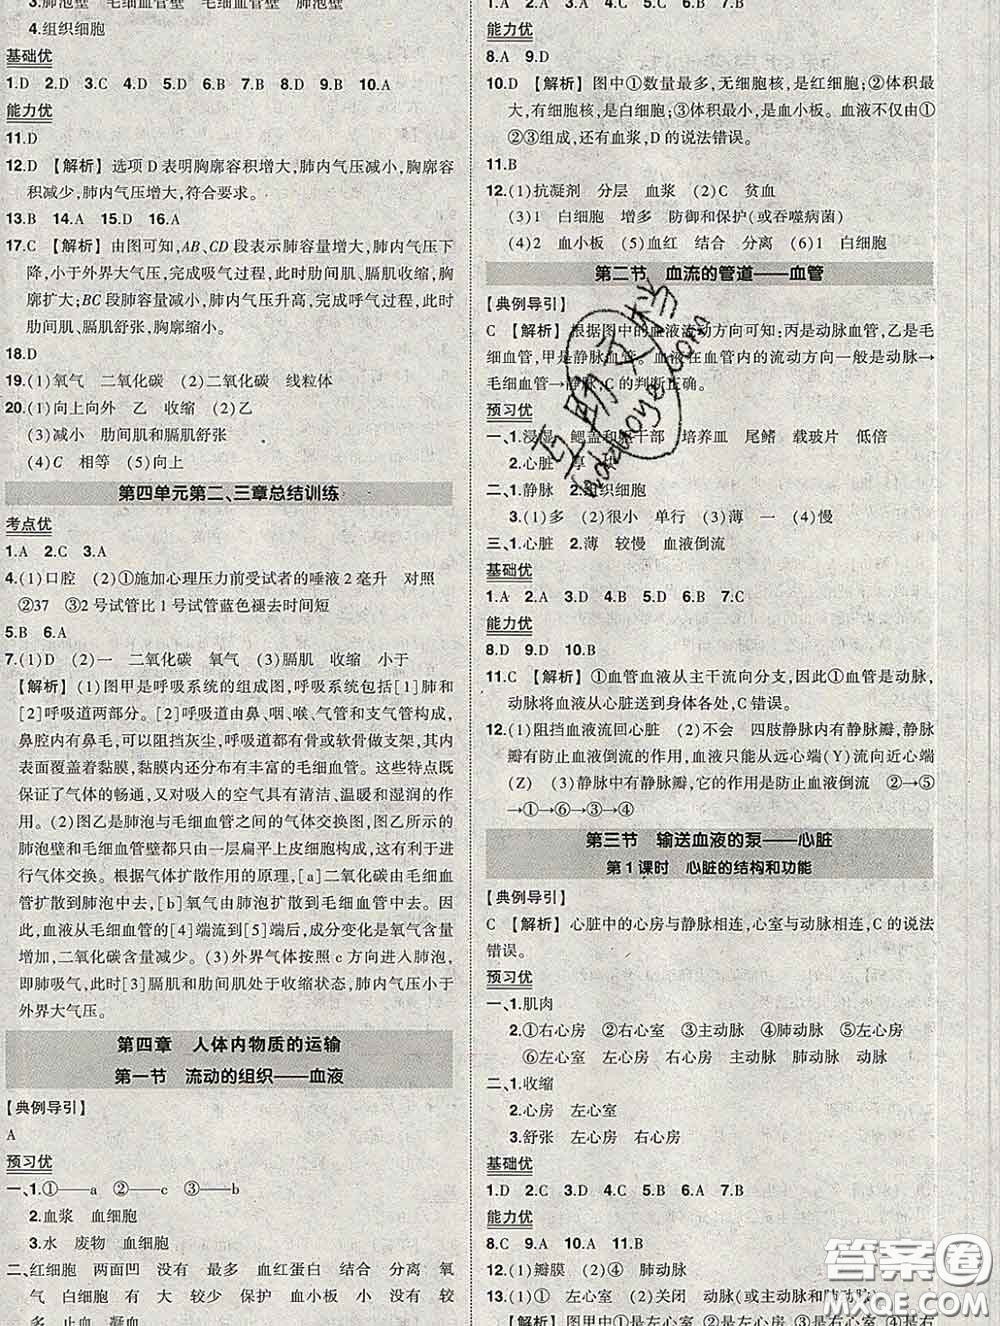 3.肺泡壁　毛细血管壁　肺泡壁　毛细血管壁
4.组织细胞
基础优
1.D　2.D　3.C　4.A　5.D　6.A　7.C　8.B　9.D　10.A
能力优
11.D
12.D　【解析】选项D表明胸廓容积增大,肺内气压减小,胸廓容
积减少,肺内气压增大,符合要求。
13.B　14.A　15.D　16.A
17.C　【解析】由图可知,AB、CD段表示肺容量增大,肺内气压下
降,小于外界大气压,完成吸气过程,此时肋间肌、膈肌收缩,胸
廓扩大;BC段肺容量减小,肺内气压升高,完成呼气过程,此时
肋间肌、膈肌舒张,胸廓缩小。
18.D
19.(1)氧气　二氧化碳　(2)二氧化碳　线粒体
20.(1)向上向外　乙　收缩　(2)乙
(3)减小　肋间肌和膈肌舒张
(4)C　相等　(5)向上
第四单元第二、三章总结训练
考点优
1.A　2.C　3.A
4.(1)口腔　(2)①施加心理压力前受试者的唾液2毫升　对照
②37　③2号试管比1号试管蓝色褪去时间短
5.B　6.A
7.(1)D　(2)一　二氧化碳　氧气　(3)膈肌　收缩　小于
【解析】(1)图甲是呼吸系统的组成图,呼吸系统包括[1]肺和
[2]呼吸道两部分。[2]呼吸道由鼻、咽、喉、气管和支气管构成,
鼻腔内有鼻毛,可以阻挡灰尘,呼吸道都有骨或软骨做支架,其内
表面覆盖着黏膜,黏膜内还分布有丰富的毛细血管。这些特点既
保证了气体的畅通,又对吸入的空气具有清洁、温暖和湿润的作
用。(2)图乙是肺泡与毛细血管之间的气体交换图,图乙所示的
肺泡壁和毛细血管壁都由一层扁平上皮细胞构成,有利于肺泡
进行气体交换。根据气体扩散作用的原理,[a]二氧化碳由血
管扩散到肺泡中去,[b]氧气由肺泡扩散到毛细血管中去。因
此,血液从毛细血管的[4]端流到[5]端后,成分变化是氧气含量
增加,二氧化碳含量减少。(3)外界气体按照c方向进入肺泡,
即肺吸气,此时[3]膈肌和肋间肌处于收缩状态,肺内气压小于
外界大气压。
第四章　人体内物质的运输
第一节　流动的组织——血液
【典例导引】
A
预习优
一、1.①——a　②——c　③——b
2.血浆　血细胞
3.水　废物　血细胞
二、红细胞　两面凹　没有　最多　血红蛋白　结合　分离　氧
气　白细胞　有　较大　较少　保护　血小板　小　没有　较
多　止血　凝血
1.A　2.C　3.B　4.B　5.C　6.B　7.B
能力优
8.A　9.D
10.D　【解析】图中①数量最多,无细胞核,是红细胞;②体积最
大,有细胞核,是白细胞;③体积最小,是血小板。血液不仅由①
②③组成,还有血浆,D的说法错误。
11.B
12.(1)抗凝剂　分层　血浆　(2)C　贫血
(3)1　白细胞　增多　防御和保护(或吞噬病菌)
(4)2　血小板　(5)血红　结合　分离　(6)1　白细胞
第二节　血流的管道——血管
【典例导引】
C　【解析】根据图中的血液流动方向可知:丙是动脉血管,乙是毛
细血管,甲是静脉血管。血液在血管内的流动方向一般是动脉→
毛细血管→静脉,C的判断正确。
预习优
一、1.浸湿　鳃盖和尾干部　培养皿　尾鳍　载玻片　低倍
2.心脏
二、1.静脉　2.组织细胞
3.(1)多　(2)很小　单行　(3)薄　一　(4)慢
三、1.心脏　2.薄　较慢　血液倒流
基础优
1.D　2.A　3.D　4.A　5.B　6.B　7.C
能力优
8.D　9.D　10.B
11.C　【解析】①血管血液从主干流向分支,因此①血管是动脉,
动脉将血液从心脏送到身体各处,C错误。
12.(1)阻挡血液流回心脏　(2)不会　四肢静脉内有静脉瓣,静脉
瓣有防止血液倒流的作用,血液只能从远心端(Y)流向近心端
(Z)　(3)静脉中有静脉瓣,它的作用是防止血液倒流　②→⑤
→①→⑥→③→④
第三节　输送血液的泵——心脏
第1课时　心脏的结构和功能
【典例导引】
C　【解析】心脏中的心房与静脉相连,心室与动脉相连,C的说法
错误。
预习优
一、1.肌肉
2.①右心房　②右心室　③主动脉　④肺动脉　⑤左心房
⑥左心室　左心室　主动脉　右心室　肺动脉　动脉
二、1.收缩
2.心房　左心室
3.舒张　左心房　右心房
基础优
1.D　2.C　3.D　4.B　5.B　6.A　7.B
能力优
8.C　9.A　10.A　11.B
12.(1)瓣膜　(2)④　肺动脉
13.(1)①　左心室　(2)关闭　动脉(或主动脉和肺动脉)
【解析】图甲中①是左心房,②是左心室,
答案圈
MXQE.COM